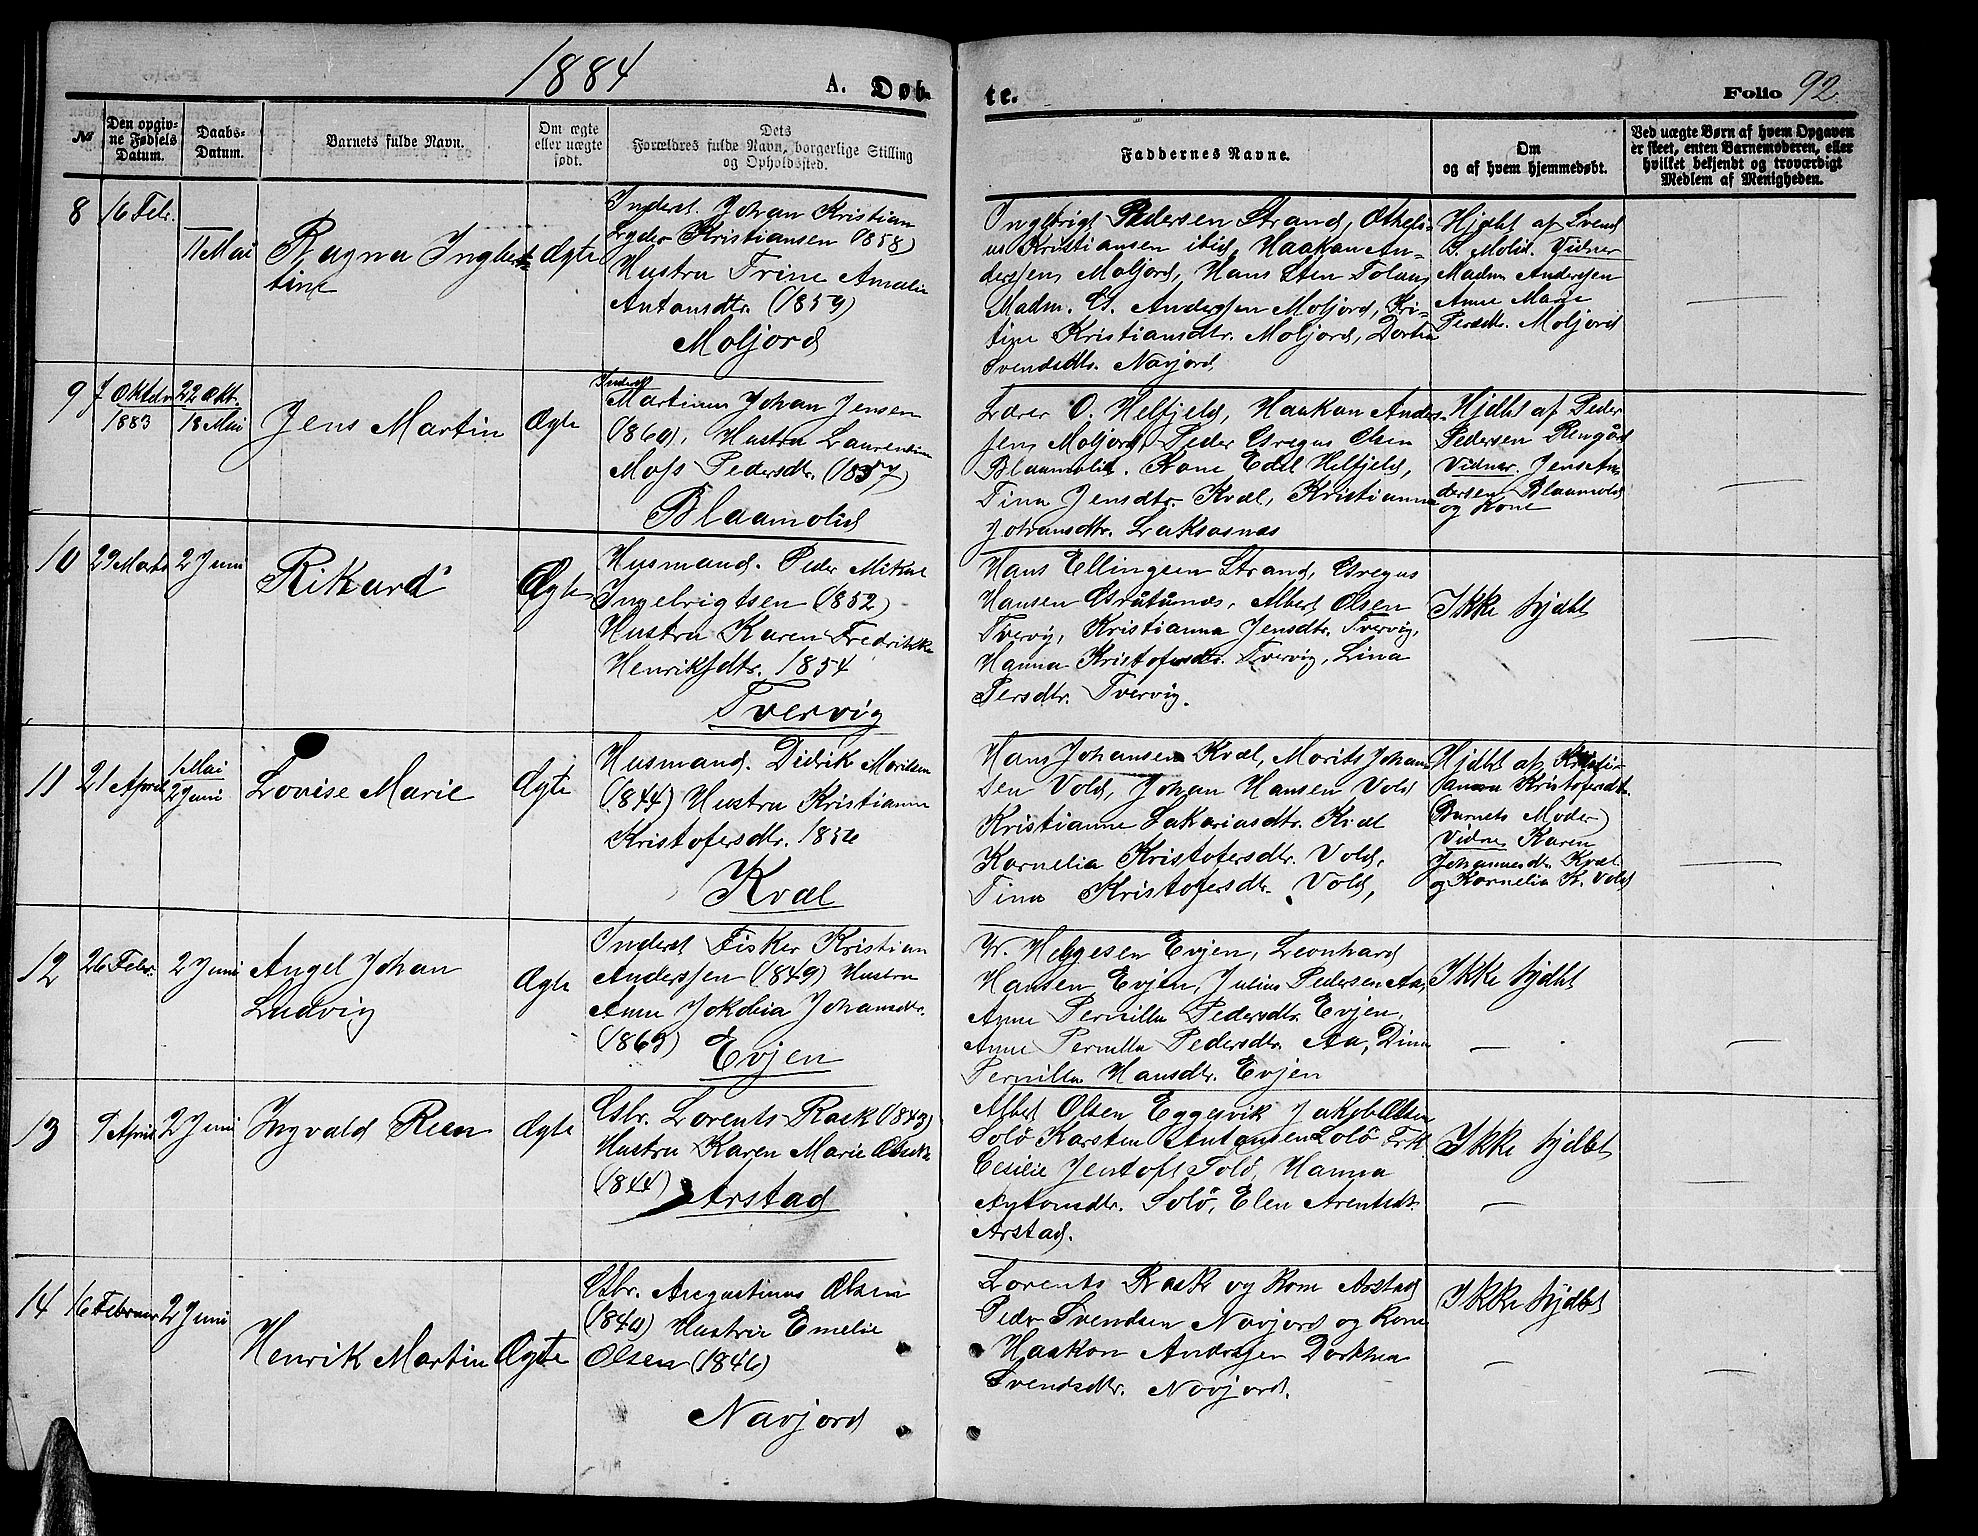 1884
A. Døb-
te.
Folio 92
№
Den opgiv-
ne Fødsels
Datum.
Daabs-
Datum.
Barnets fulde Navn.
Om ægte
eller uægte
født.
Dets
Forældres fulde Navn, borgerlige Stilling
og Opholdssted.
Faddernes Navne.
Om
og af hvem hjemmedøbt.
Ved uægte Børn af hvem Opgaven
er skeet, enten Barnemoderen, eller
hvilket bekjendt og troværdigt
Medlem af Menigheden.
8
16 Febr.
11 Mai
Ragna Ingber-
tine
Ægte
Inderst. Johan Kristian
Lyder Kristiansen (1858)
Hustru Trine Amalie
Antonsdtr. (1859)
Moljord
Ingebrigt Pedersen Strand, Otheli-
us Kristiansen ibid, Haakon An-
dersen Moljord, Hans Sten
Madm. Andersen Moljord, Kri-
tine Kristiansdtr. Moljord, Dortea
Svendsdtr. Navjord
Hjdbt af Svend
B. Molid. Vidner
Madm Andersen
Anne Marie
Persdtr. Moljord
9
7 Oktdr
1883
22 Okt.
18 Mai
Jens Martin
Ægte
Inderst
Martinus Johan Jensen
(1860), Hustru Laurentine
Moss Pedersdtr. (1857)
Blaamolid
Lærer O. Helfjeld, Haakon Ander-
sen Moljord, Peder Gregus Olsen
Blaamolid. Kone Edel Helfjeld,
Tina Jensdtr. Kvæl, Kristianna
Johansdtr. Laksosnæs
Hjdbt af Peder
Pedersen Rengård
Vidner. Jens An-
dersen Blaamolid
og Kone
10
29 Marts
2 Juni
Rikard
Ægte
Husmand. Peder Mikal
Ingebrigtsen (1852)
Hustru Karen Fredrikke
Henriksdtr. 1854
Tvervig
Hans Ellingsen Strand, Gregus
Hansen Grutunæs, Albert Olsen
Tvervig, Kristianna Jensdtr. Tvervig,
Hanna Kristofersdtr. Tvervig, Lina
Persdtr. Tvervig.
Ikke hjdbt
11
21 April
1 Mai
2 Juni
Lovise Marie
Ægte
Husmand. Didrik Moritsen
(1844) Hustru Kristianne
Kristofersdtr. 1856
Kvæl
Hans Johansen Kvæl, Morits Johan
sen Vold, Johan Hansen Vold
Kristianne Sakariasdtr. Kvæl
Kornelia Kristofersdtr. Vold,
Tina Kristofersdtr. Vold,
Hjdbt af Kristi-
anna Kristofersdt.
(Barnets Moder)
Vidne Karen
Johannesdtr. Kvæl
og Kornelia K. Vold
12
26 Febr.
2 Juni
Angel Johan
Ludvig
Ægte
Inderst Fisker Kristian
Anderssen (1849) Hustru
Anne Jokobia Johansdtr.
(1863) Evjen
W. Helgesen Evjen, Leonhard
Hansen Evjen, Julius Pedersen Aa,
Anne Pernilla Pedersdtr. Evjen,
Anne Pernilla Pedersdtr. Aa, Dina
Pernilla Hansdtr. Evjen
Ikke hjdbt
13
9 April
2 Juni
Ingvald Reen
Ægte
Gbr. Lorents Rask (1843)
Hustru Karen Marie Olsen
(1844) Arstad
Albert Olsen Eggesvik Jakob Olsen
Solö Karsten Antonsen Solö, Frk
Cesilie Jentoft Solö, Hanna
Antonsdtr. Solö, Elen Arentsdt.
Arstad.
Ikke hjdbt
14
16 Februar
2 Juni
Henrik Martin
Ægte
Gbr. Augustinus Olsen
(1840) Hustru Emelie
Olsen (1846)
Navjord
Lorents Rask og Kone Arstad
Peder Svendsen Navjord og Kone
Haakon Andersen Dorthea
Svendsdtr. Navjord.
Ikke hjdbt